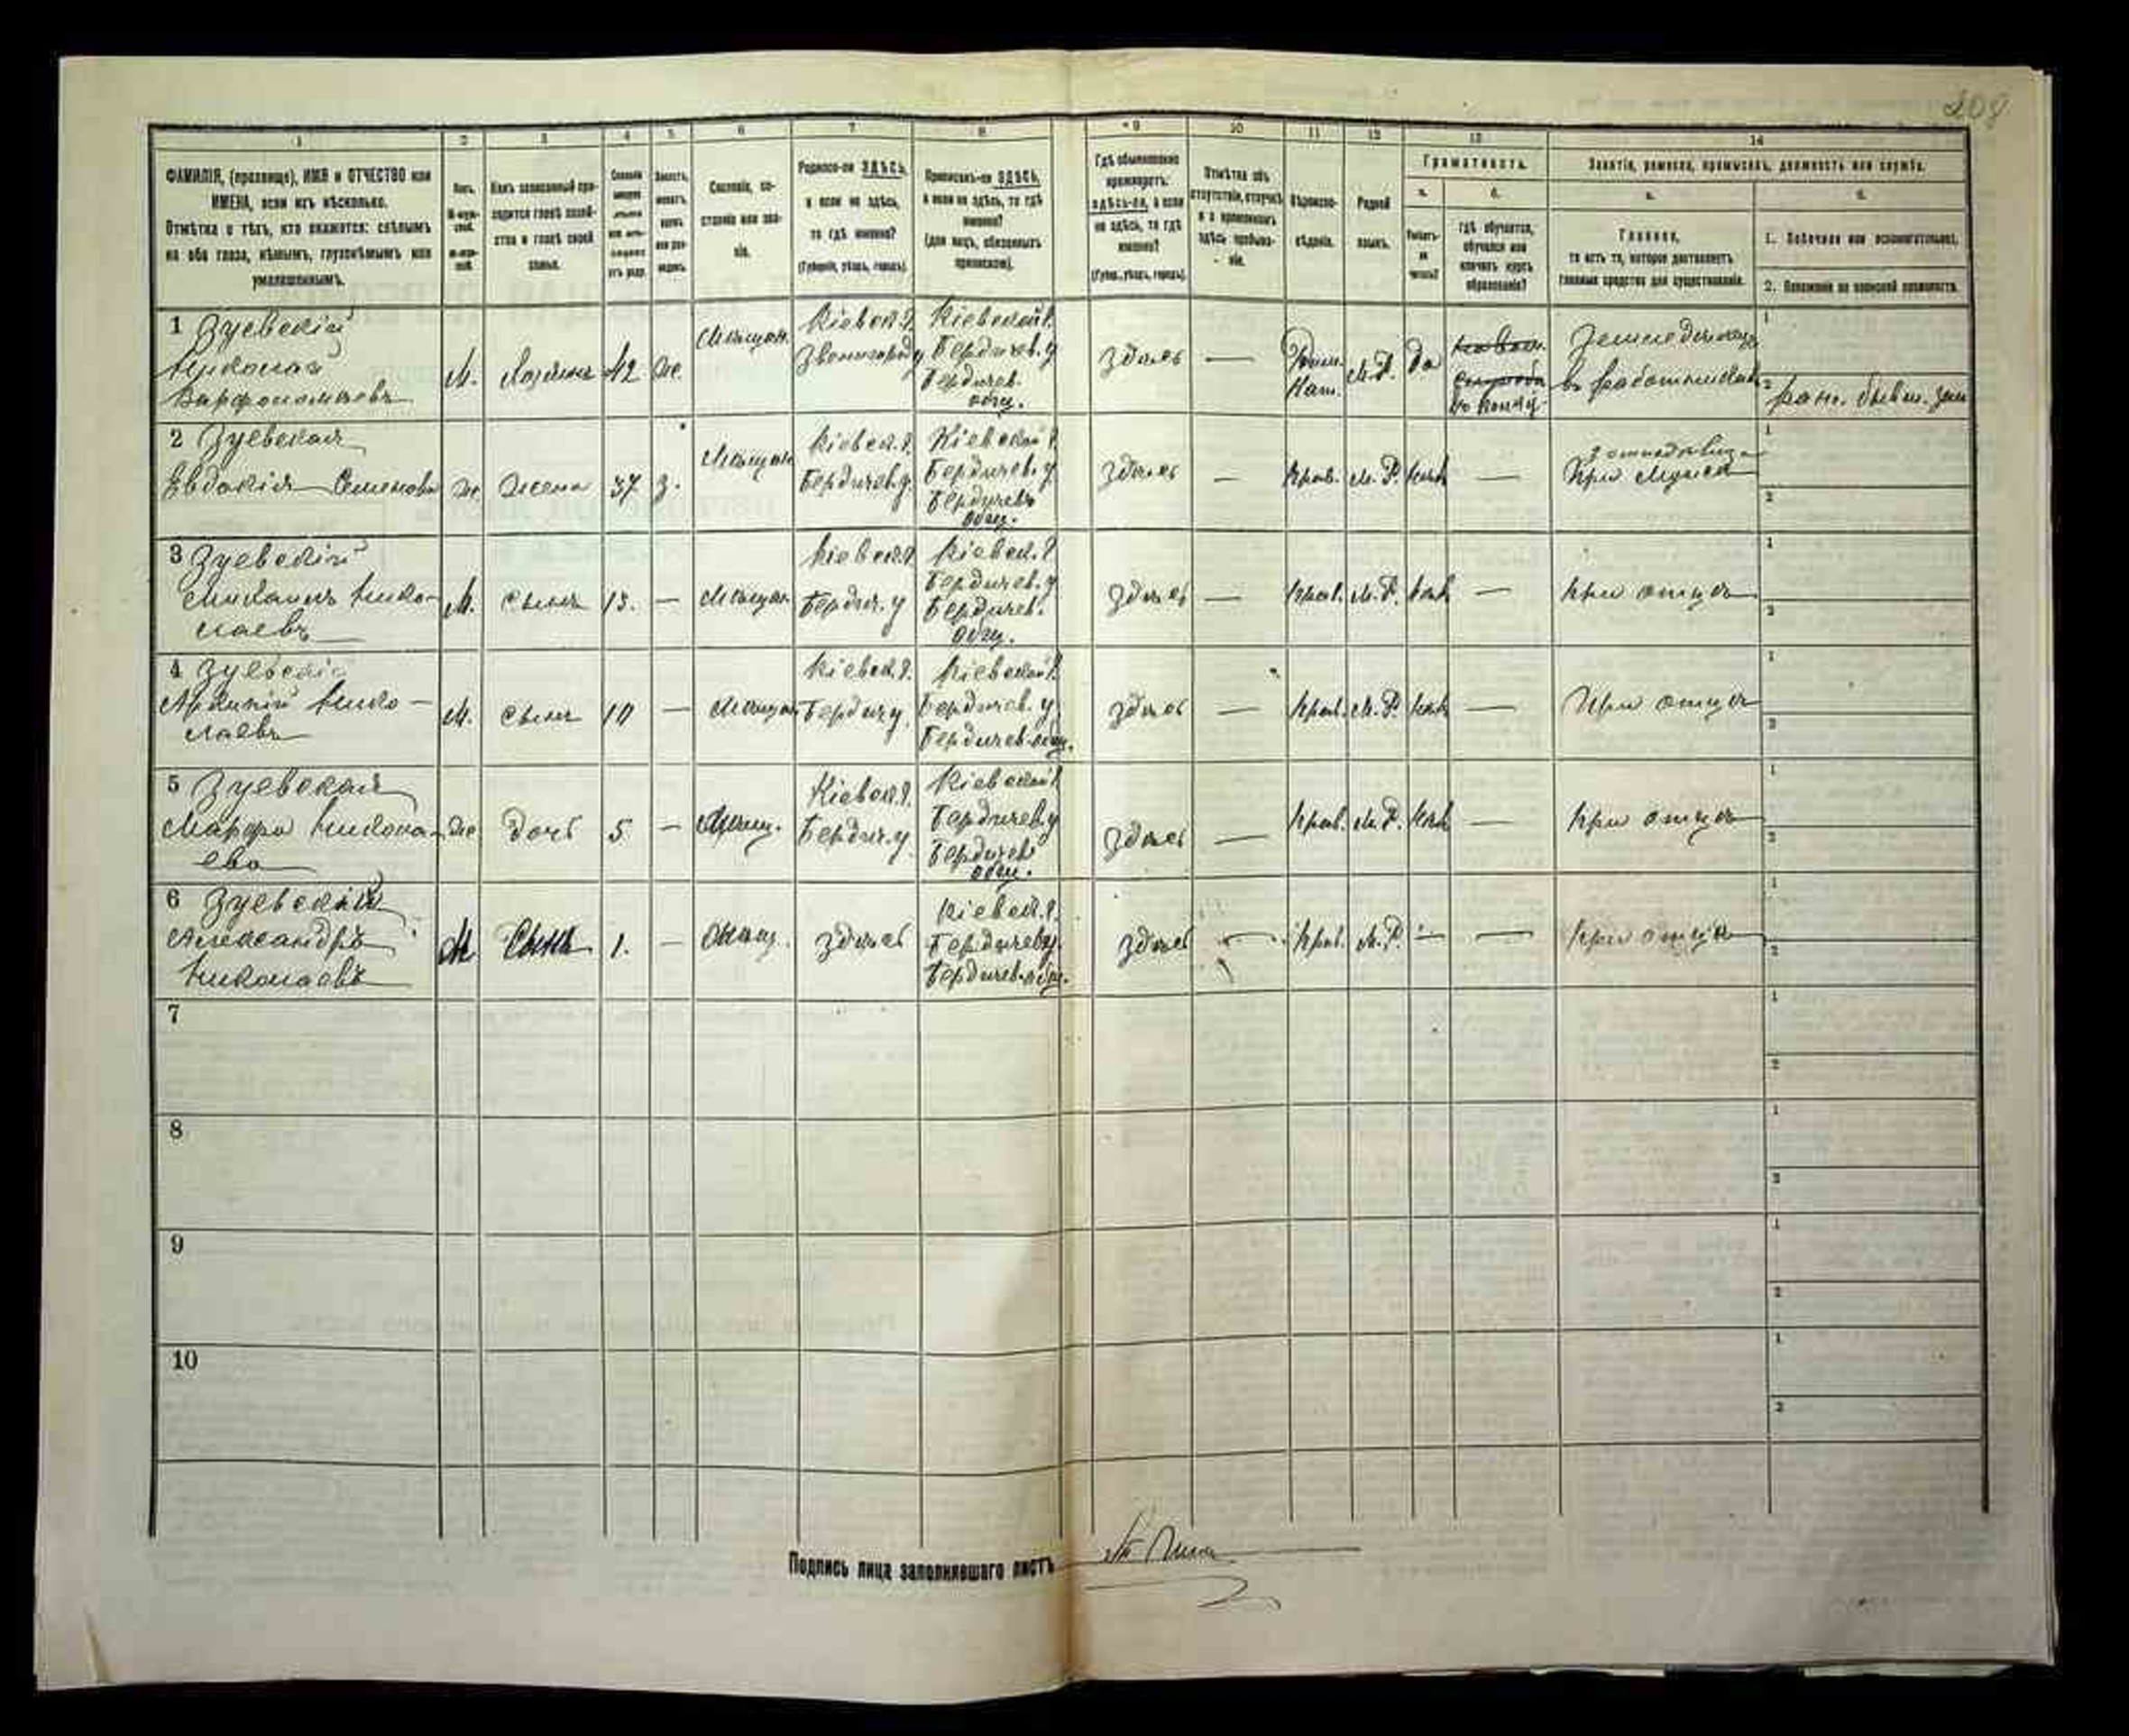 208
1
2
3
4
5
6
7
8
9
10
11
12
13
14
ФАМИЛІЯ, (прозвище), ИМЯ и ОТЧЕСТВО или
ИМЕНА, если ихъ нѣсколько.
Отмѣтка о тѣхъ, кто окажется: слѣпымъ
на оба глаза, нѣмымъ, глухонѣмымъ или
умалишеннымъ.
Полъ.
Какъ записанный при-
ходится главѣ хозяй-
ства и главѣ своей
семьи.
Сословіе, со-
стояніе или зва-
ніе.
Родился-ли ЗДѢСЬ,
а если не здѣсь,
то гдѣ именно?
(Губернія, уѣздъ, городъ).
Приписанъ-ли ЗДѢСЬ,
а если не здѣсь, то гдѣ
именно?
(для лицъ, обязанныхъ
припискою).
Гдѣ обыкновенно
проживаетъ:
здѣсь-ли, а если
не здѣсь, то гдѣ
именно?
(Губер., уѣздъ, городъ).
Отмѣтка объ
отсутствіи, отлучкѣ
и о временномъ
здѣсь пребыва-
ніи.
Вѣроиспо-
вѣданіе.
Родной
языкъ.
Грамотность.
а.
б.
Умѣетъ-
ли
читать?
Гдѣ обучается,
обучался или
кончилъ курсъ
образованія?
Занятіе, ремесло, промыселъ, должность или служба.
а.
б.
Главное,
то есть то, которое доставляетъ
главныя средства для существованія.
1. Побочное или вспомогательное.
2. Положеніе по воинской повинности.
1 Зуевскій
Николай
Варфоломеевъ
М.
Хозяинъ
42
Же.
Мѣщан.
Кіевск. г.
Звенигород у
Кіевской г.
Бердичев. у
Бердичев.
общ.
здѣсь
—
М. Р.
да
Земледѣлецъ
2 Зуевская
Евдокія Семенова
Же
Жена
37
З.
Мѣщан
Кіевск. г.
Бердичев. у.
Кіевской г.
Бердичев. у
Бердичевъ
общ.
здѣсь
Прав.
М. Р.
—
При мужѣ
3 Зуевскій
Михаилъ Нико-
лаевъ
М.
Сынъ
13.
—
Мѣщан
Кіевск. г
Бердич. у
Кіевск. г
Бердичев. у
Бердичев.
общ.
здѣсь
—
Прав.
М. Р.
—
при отцѣ
4 Зуевскій
Нико-
лаевъ
М.
Сынъ
10
—
Мѣщан
Кіевск. г.
Бердич у.
Кіевской г.
Бердичев. у
Бердичев. общ.
здѣсь
—
Прав.
М. Р.
—
При отцѣ
5 Зуевская
Марфа Никола-
ева
Же
Дочь
5
—
Мѣщ.
Кіевск. г.
Бердич. у
Кіевской г
Бердичев у
Бердичев
общ.
здѣсь
—
Прав.
М. Р.
—
при отцѣ
6 Зуевскій
Александръ
Николаевъ
М
Сынъ
1.
—
Мѣщ.
здѣсь
Кіевск. г.
Бердичев у.
Бердичев. общ.
здѣсь
—
Прав.
М. Р.
—
—
при отцѣ
7
8
9
10
Подпись лица заполнившаго листъ